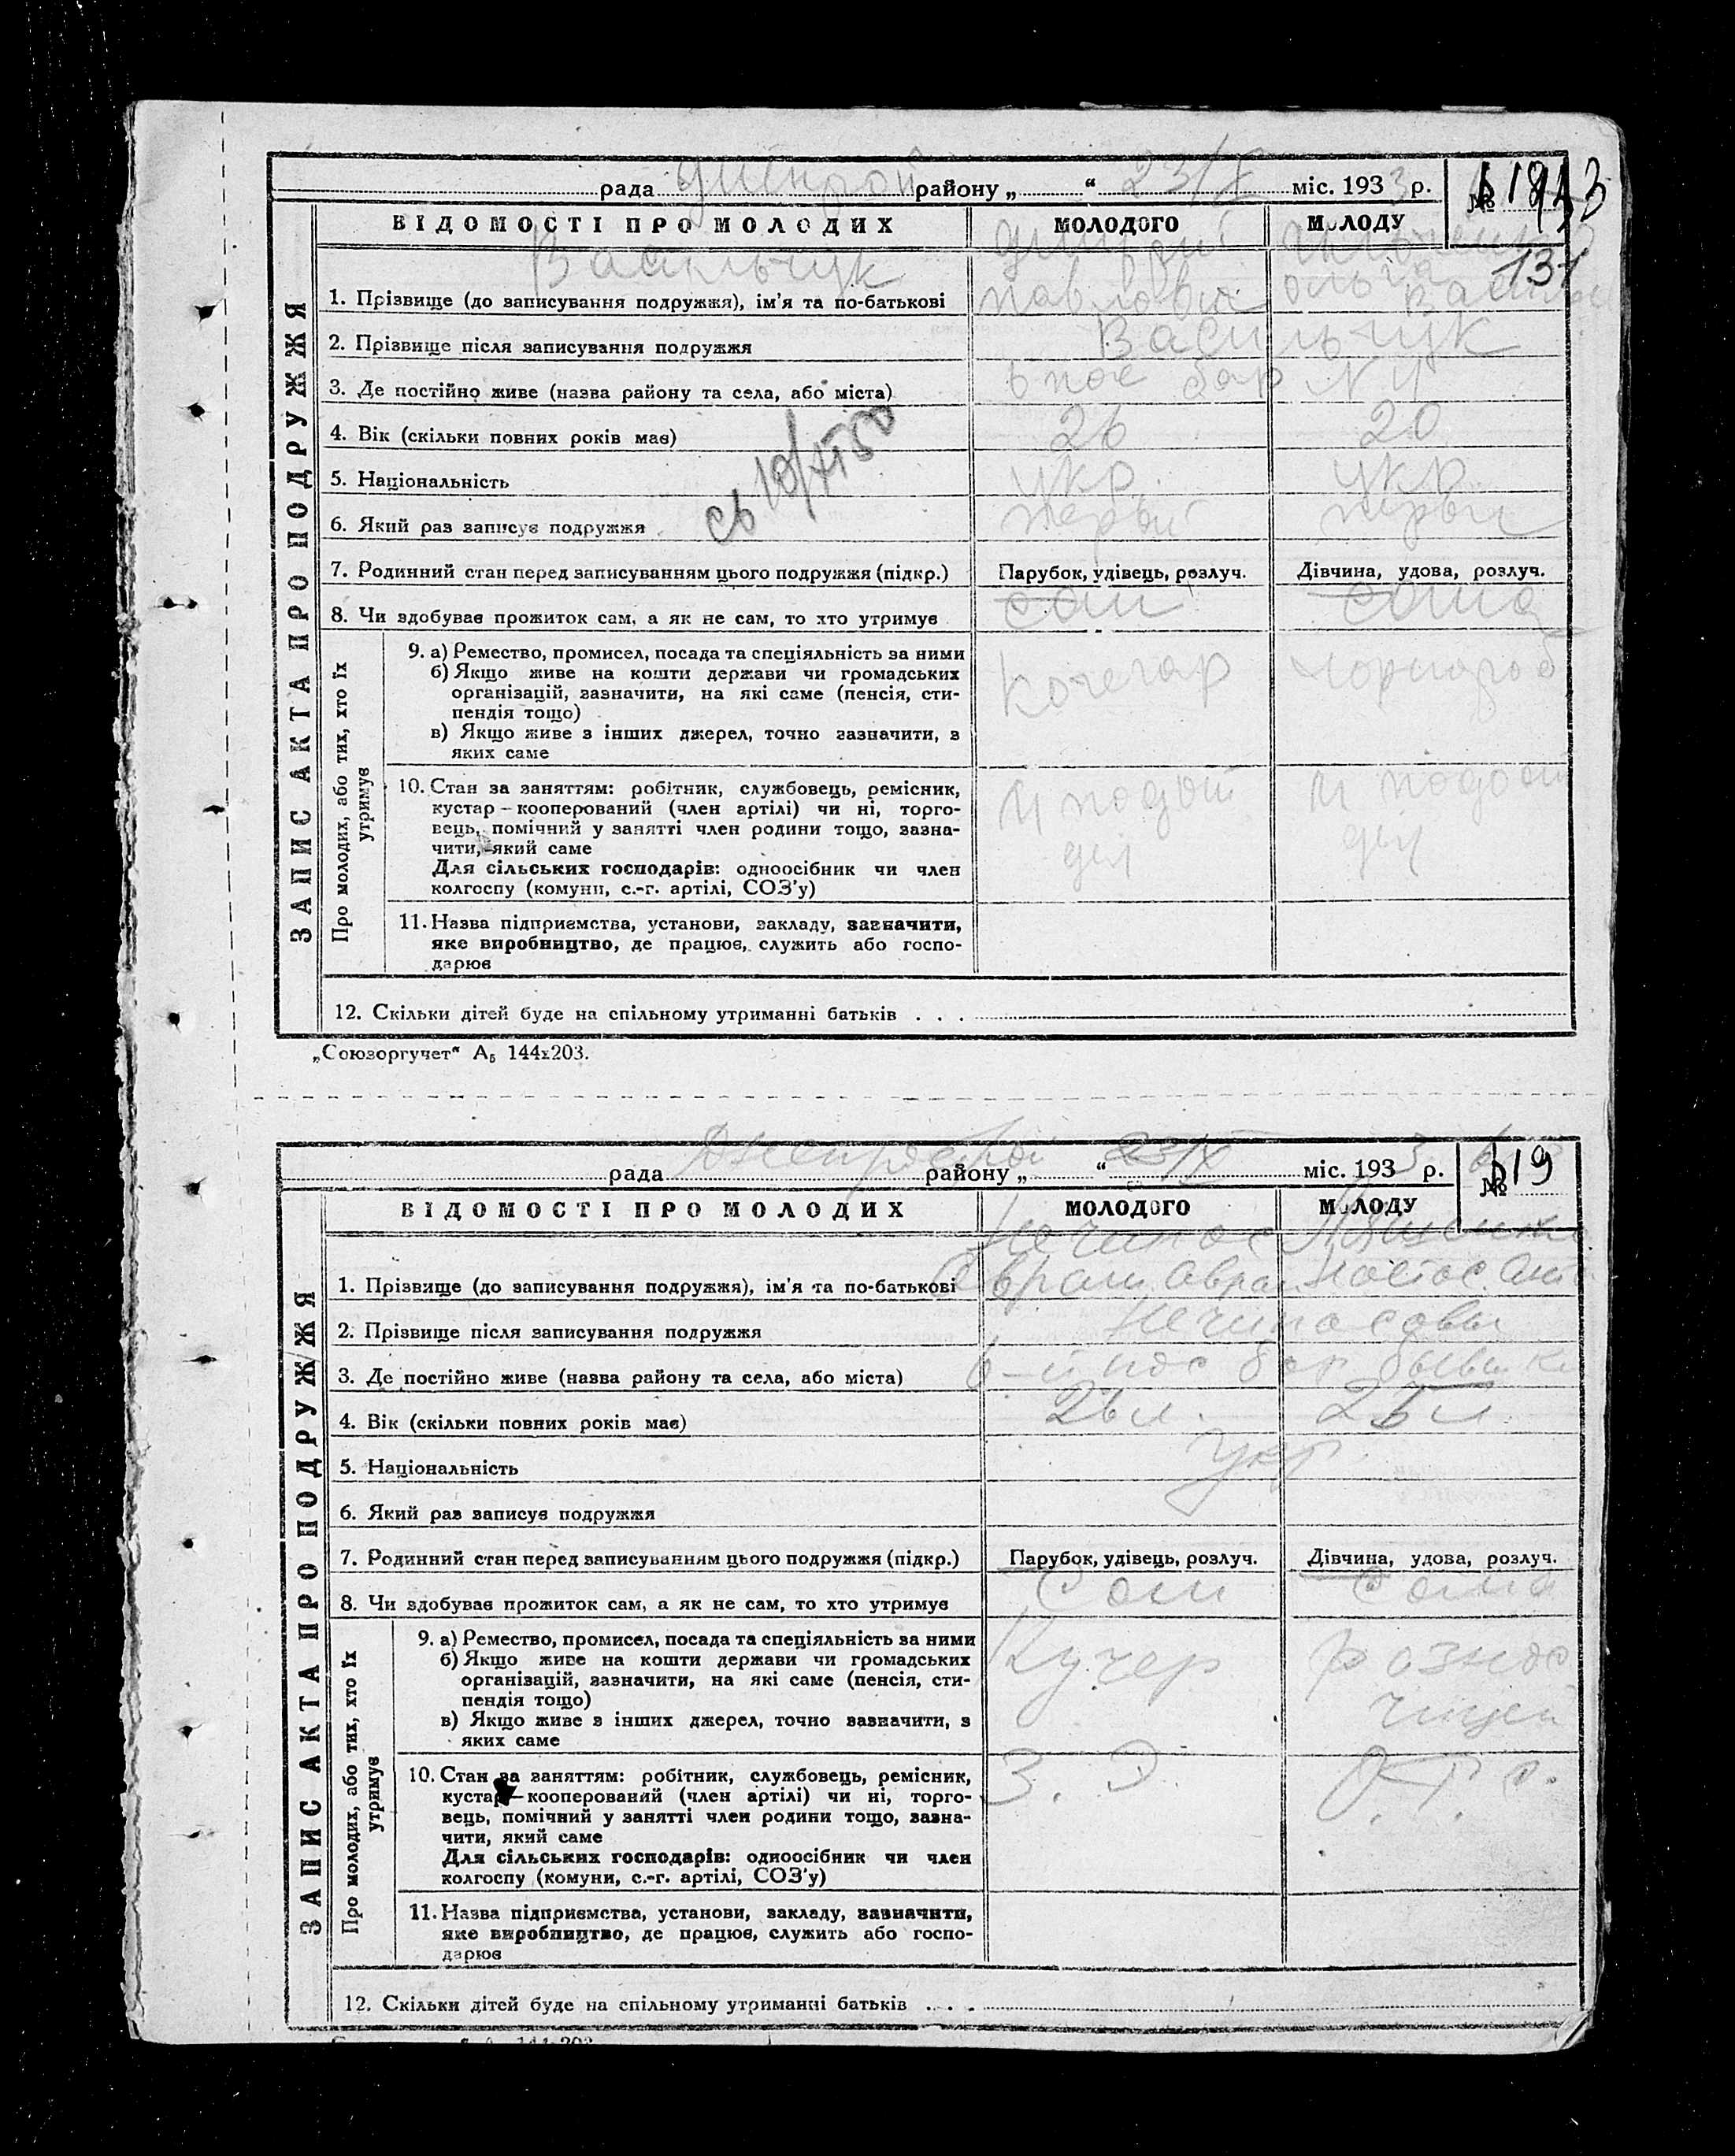 рада районy „ “ 23/X міс. 1933 р. №
ВІДОМОСТІ ПРО МОЛОДИХ МОЛОДОГО МОЛОДУ
131
Васильчук
1. Прізвище (до записування подружжя), ім'я та по-батькові Павлович Ольга
2. Прізвище після записування подружжя Васильчук
3. Де постійно живе (назва району та села, або міста) 6 пос бар N 4
4. Вік (скільки повних років має) 26 20
5. Національність укр. укр.
6. Який раз записує подружжя первий
7. Родинний стан перед записуванням цього подружжя (підкр.) Парубок, удівець, розлуч. Дівчина, удова, розлуч.
8. Чи здобуває прожиток сам, а як не сам, то хто утримує сам сама
ЗАПИС АКТА ПРО ПОДРУЖЖЯ
Про молодих, або тих, хто їх утримує
9. а) Ремество, промисел, посада та спеціяльність за ними Кочегар чорнороб
б) Якщо живе на кошти держави чи громадських
організацій, зазначити, на які саме (пенсія, сти-
пендія тощо)
в) Якщо живе з інших джерел, точно зазначити, з
яких саме
10. Стан за заняттям: робітник, службовець, ремісник,
кустар — кооперований (член артілі) чи ні, торго-
вець, помічний у занятті член родини тощо, зазна-
чити, який саме
Для сільських господарів: одноосібник чи член
колгоспу (комуни, с.-г. артілі, СОЗ'у)
11. Назва підприємства, установи, закладу, зазначити,
яке виробництво, де працює, служить або госпо-
дарює
12. Скільки дітей буде на спільному утриманні батьків . . .
„Союзоргучет“ А₅ 144х203.
рада районy „ “ 23/X міс. 1933 р. № 19
ВІДОМОСТІ ПРО МОЛОДИХ МОЛОДОГО МОЛОДУ
1. Прізвище (до записування подружжя), ім'я та по-батькові
2. Прізвище після записування подружжя
3. Де постійно живе (назва району та села, або міста) 6-й пос бар
4. Вік (скільки повних років має) 26 л.
5. Національність укр.
6. Який раз записує подружжя
7. Родинний стан перед записуванням цього подружжя (підкр.) Парубок, удівець, розлуч. Дівчина, удова, розлуч.
8. Чи здобуває прожиток сам, а як не сам, то хто утримує Сам Сама
ЗАПИС АКТА ПРО ПОДРУЖЖЯ
Про молодих, або тих, хто їх утримує
9. а) Ремество, промисел, посада та спеціяльність за ними Кучер
б) Якщо живе на кошти держави чи громадських
організацій, зазначити, на які саме (пенсія, сти-
пендія тощо)
в) Якщо живе з інших джерел, точно зазначити, з
яких саме
10. Стан за заняттям: робітник, службовець, ремісник,
кустар — кооперований (член артілі) чи ні, торго-
вець, помічний у занятті член родини тощо, зазна-
чити, який саме
Для сільських господарів: одноосібник чи член
колгоспу (комуни, с.-г. артілі, СОЗ'у)
11. Назва підприємства, установи, закладу, зазначити,
яке виробництво, де працює, служить або госпо-
дарює
12. Скільки дітей буде на спільному утриманні батьків . . .